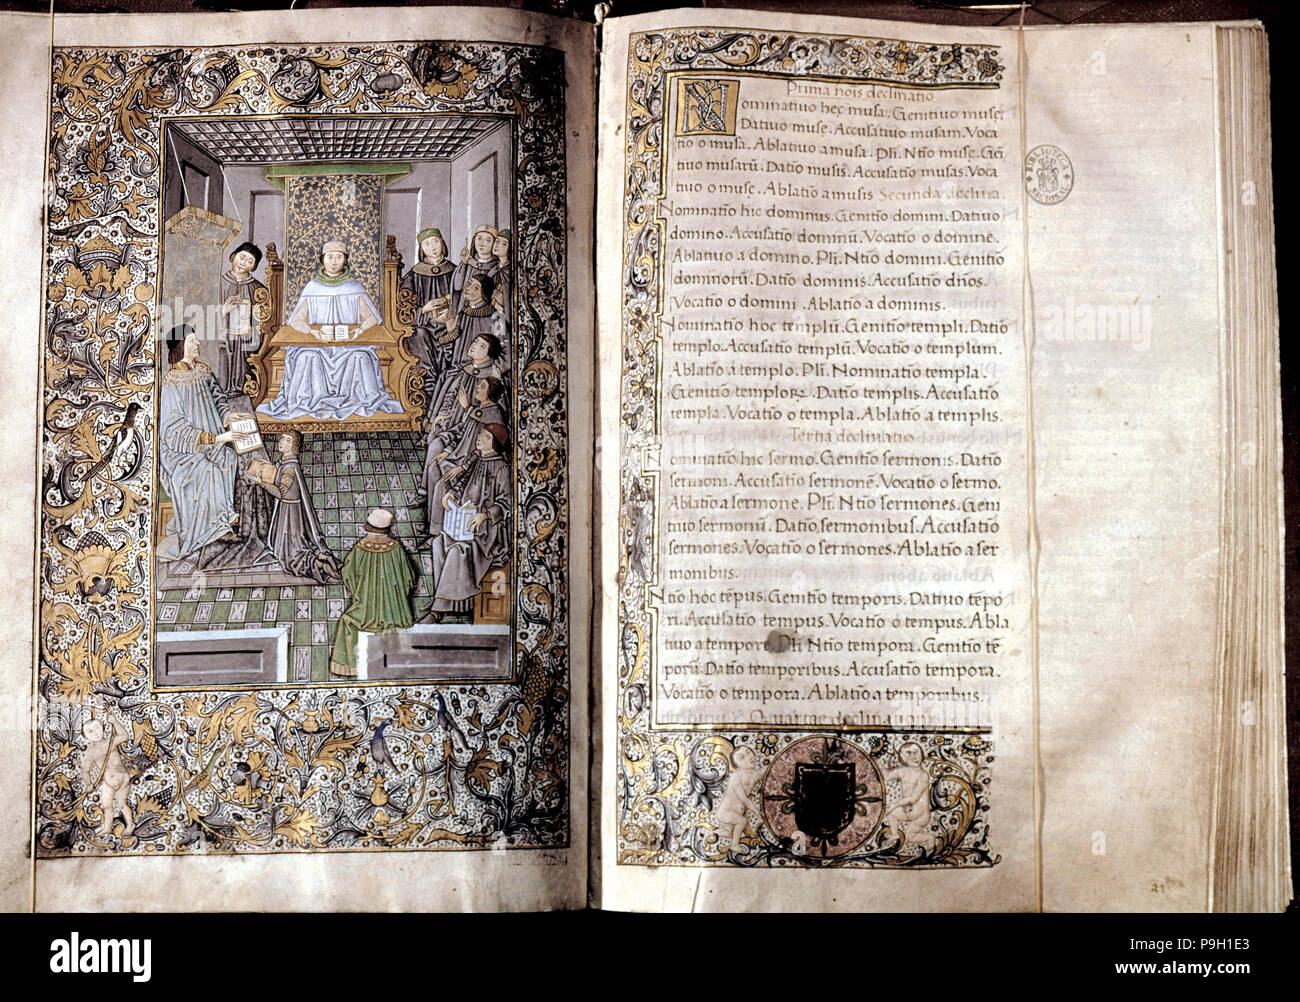 Prima nois declinatio
Nominatiuo hec musa. Genitiuo muse.
Datiuo muse. Accusatiuo musam. Voca
tio o musa. Ablatiuo a musa. Pli. Ntio muse. Geni
tiuo musarū. Datio musis. Accusatio musas. Voca
tiuo o muse. Ablatio a musis Secunda declina.
Nominatio hic dominus. Genitio domini. Datiuo
domino. Accusatio dominū. Vocatio o domine.
Ablatiuo a domino. Pli. Ntio domini. Genitio
dominorū. Datio dominis. Accusatio dños.
Vocatio o domini. Ablatio a dominis.
Nominatio hoc templū. Genitio templi. Datio
templo. Accusatio templū. Vocatio o templum.
Ablatio a templo. Pli. Nominatio templa.
Genitio templorꝝ. Datio templis. Accusatio
templa. Vocatio o templa. Ablatio a templis.
Tertia declinatio
Nominatio hic sermo. Genitio sermonis. Datio
sermoni. Accusatio sermonē. Vocatio o sermo.
Ablatio a sermone. Pli. Ntio sermones. Geni
tiuo sermonū. Datio sermonibus. Accusatio
sermones. Vocatio o sermones. Ablatio a ser
monibus.
Ntio hoc tēpus. Genitio temporis. Datiuo tēpo
ri. Accusatio tempus. Vocatio o tempus. Abla
tiuo a tempore Pli. Ntio tempora. Genitio tē
porū. Datio temporibus. Accusatio tempora.
Vocatio o tempora. Ablatio a temporibus.
Quartae declinationis
1
BIBLIOTECA NACIONAL
21
alamy
Image ID: P9H1E3
www.alamy.com